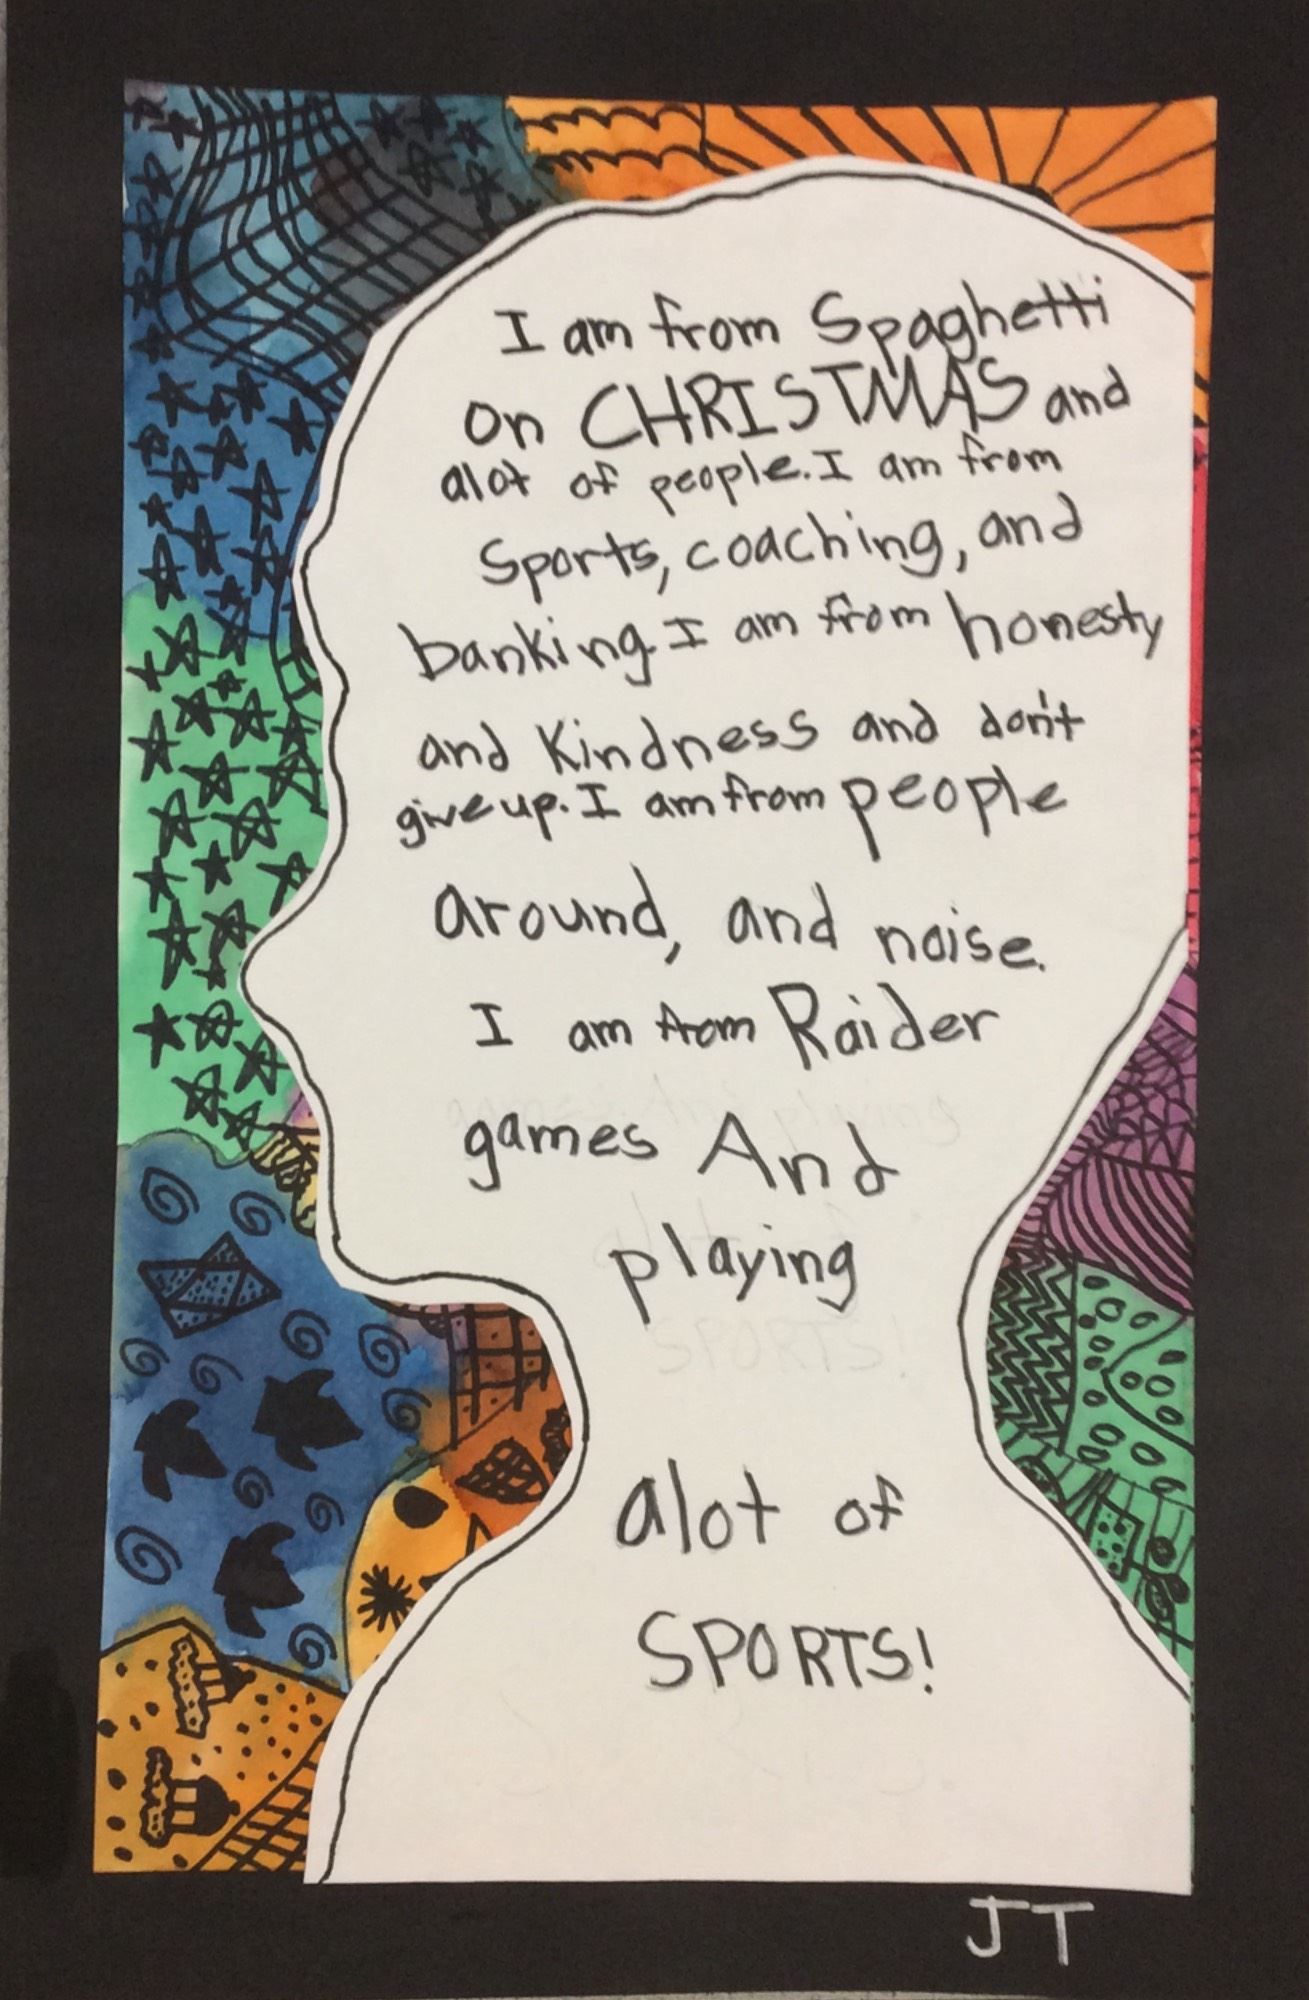 I am from Spaghetti
on CHRISTMAS and
alot of people. I am from
Sports, coaching, and
banking. I am from honesty
and Kindness and don't
give up. I am from people
around, and noise.
I am from Raider
games And
playing
alot of
SPORTS!
JT